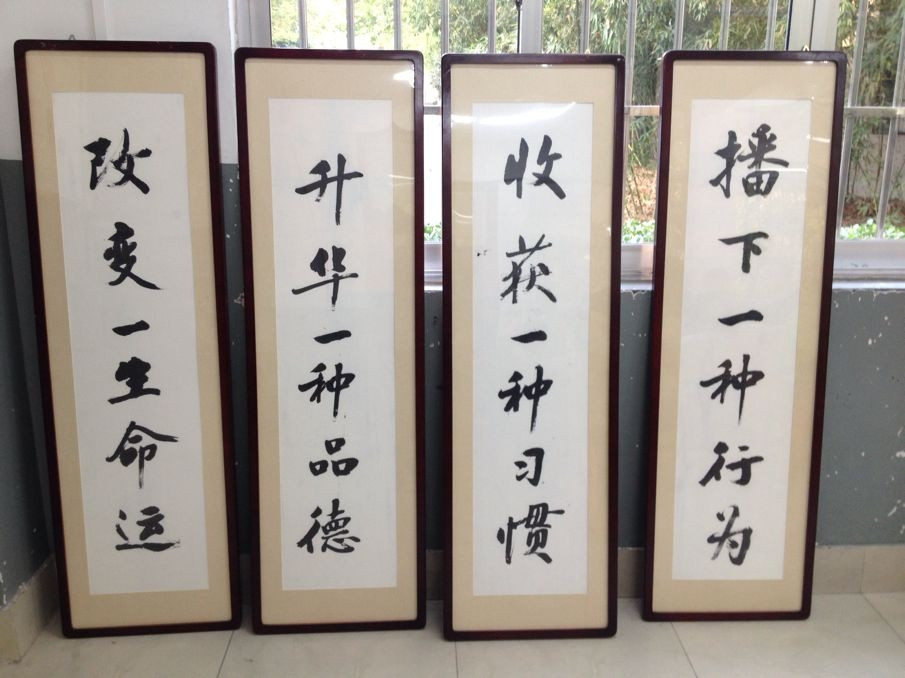 播下一种行为
收获一种习惯
升华一种品德
改变一生命运